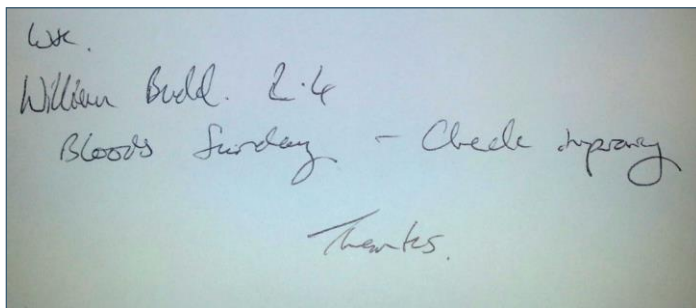 William Budd. 2.4
Bloods Sunday - Check improving
Thanks.